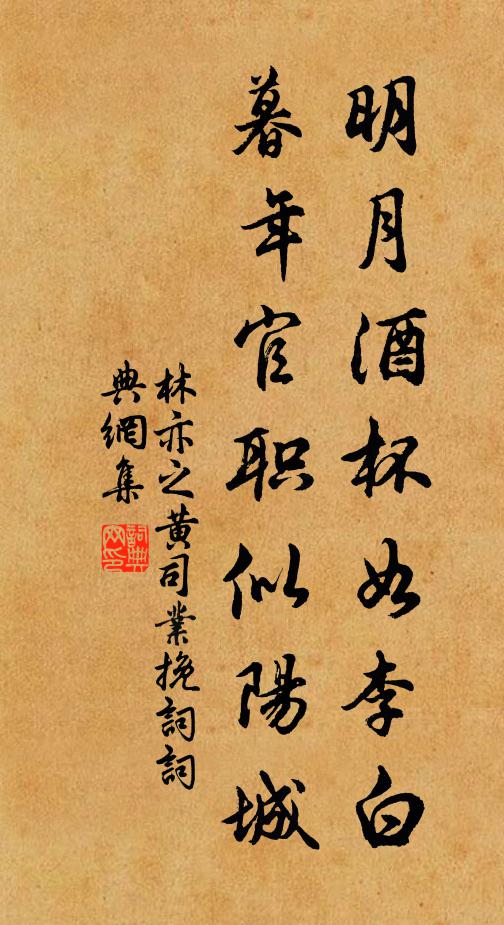 明月酒杯如李白
暮年官职似陽城
林亦之黄司業挽詞詞
典網集
詞典
网印